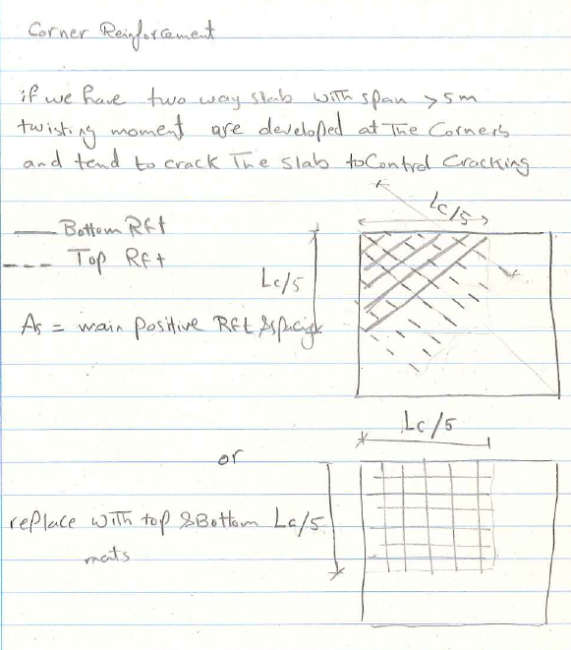 Corner Reinforcement
if we have two way slab with span > 5m
twisting moment are developed at The Corners
and tend to crack The slab to Control Cracking
Lc/5
Bottom Rft
Top Rft
Lc/5
As = main positive Rft & spacing
Lc/5
or
replace with top & Bottom Lc/5
mats